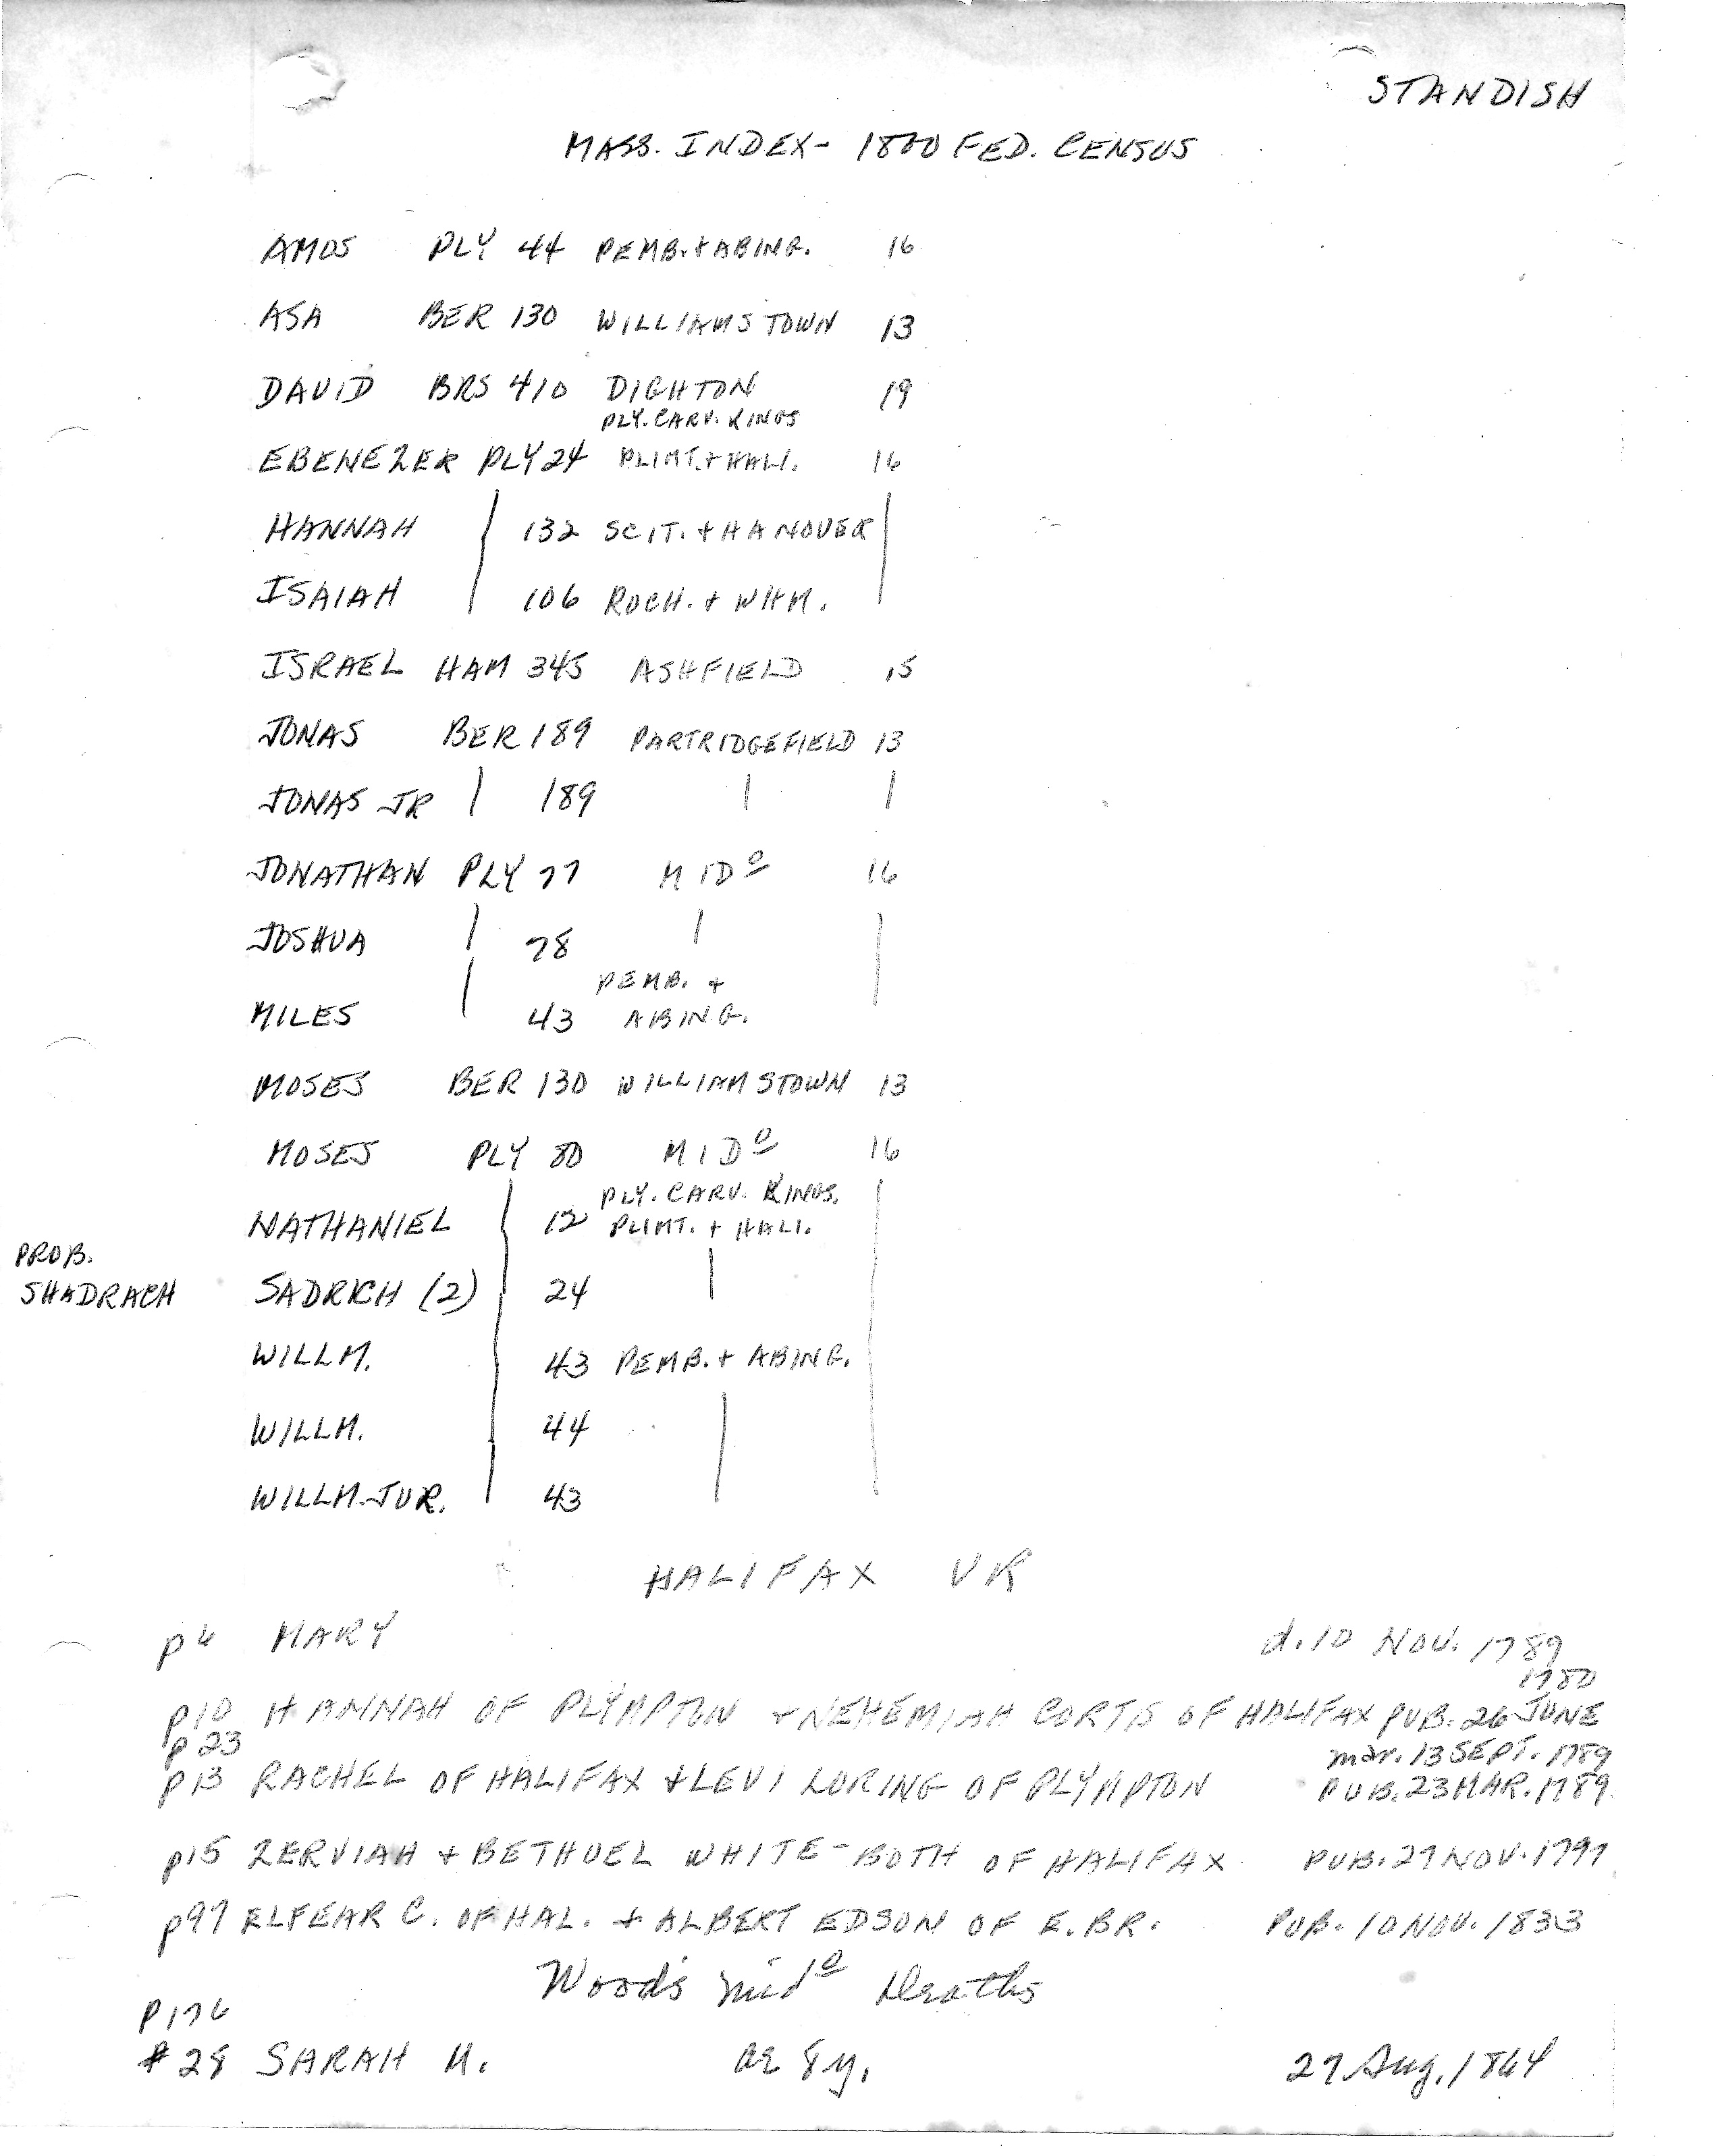 STANDISH
MASS. INDEX - 1800 FED. CENSUS
AMOS PLY 44 PEMB. + ABING. 16
ASA BER 130 WILLIAMSTOWN 13
DAVID BRS 410 DIGHTON 19
PLY. CARV. KINGS
EBENEZER PLY 24 PLIMT. + HALI. 16
HANNAH | 132 SCIT. + HANOVER |
ISAIAH | 106 ROCH. + WHM. |
ISRAEL HAM 345 ASHFIELD 15
JONAS BER 189 PARTRIDGEFIELD 13
JONAS JR | 189 | |
JONATHAN PLY 77 MIDº 16
JOSHUA | 78 | |
PEMB. +
MILES | 43 ABING. |
MOSES BER 130 WILLIAMSTOWN 13
MOSES PLY 80 MIDº 16
PLY. CARV. KINGS.
NATHANIEL | 12 PLIMT. + HALI. |
PROB.
SHADRACH SADRICH (2) | 24 | |
WILLM. | 43 PEMB. + ABING. |
WILLM. | 44 | |
WILLM. JUR. | 43 | |
HALIFAX VR
p4 MARY d. 10 NOV. 1789
1780
p10 HANNAH OF PLYMPTON + NEHEMIAH CORTIS OF HALIFAX PUB. 26 JUNE
p23 mar. 13 SEPT. 1789
p13 RACHEL OF HALIFAX + LEVI LORING OF PLYMPTON PUB. 23 MAR. 1789.
p15 ZERVIAH + BETHUEL WHITE - BOTH OF HALIFAX PUB. 27 NOV. 1797
p97 ELFEAR C. OF HAL. + ALBERT EDSON OF E. BR. PUB. 10 NOV. 1833
Wood's Midº Deaths
P176
#28 SARAH M. ae 8y. 27 Aug. 1864